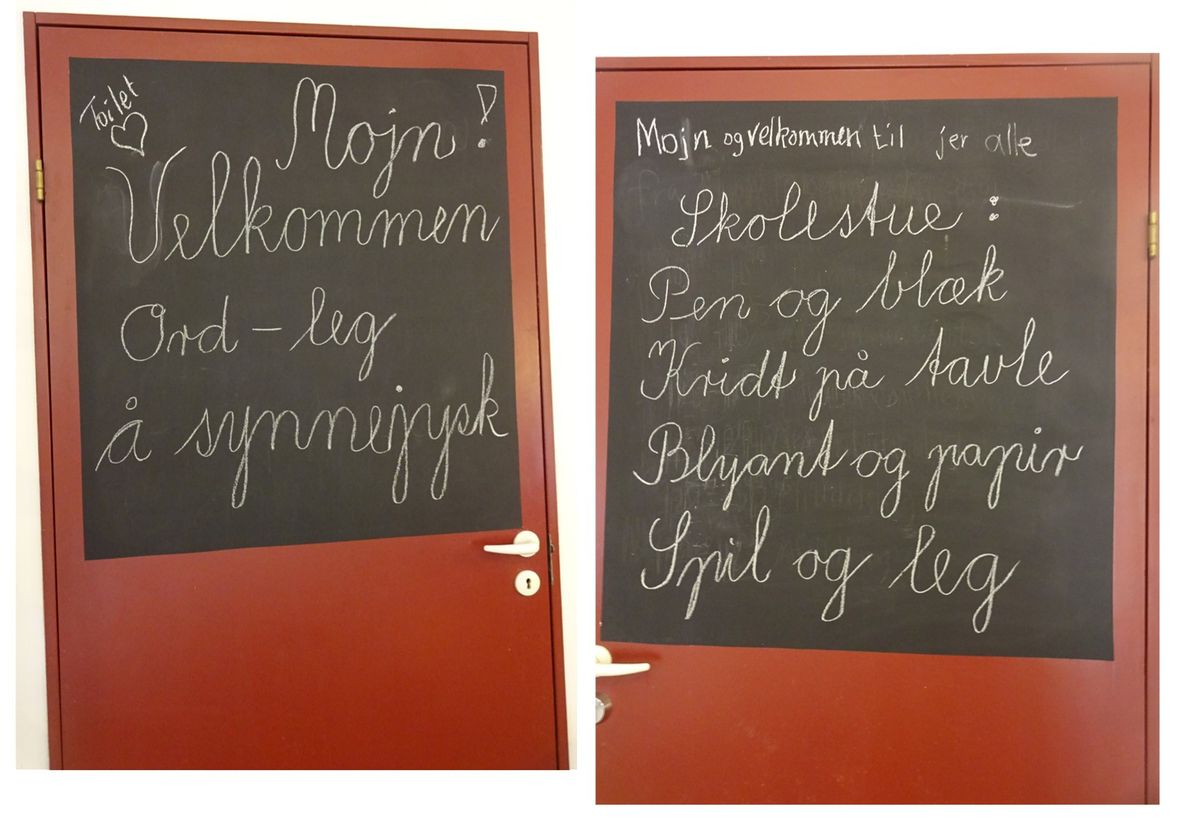 Toilet
Mojn!
Velkommen
Ord-leg
å synnejysk
Mojn og velkommen til jer alle
Skolestue:
Pen og blæk
Kridt på tavle
Blyant og papir
Spil og leg